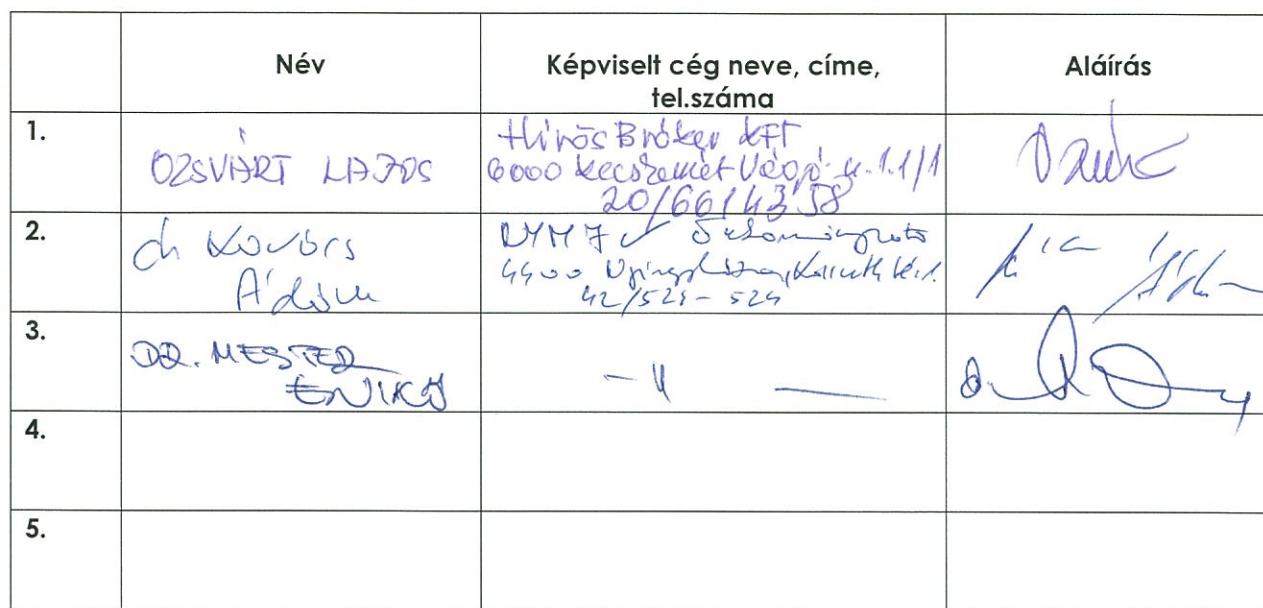 Név
Képviselt cég neve, címe,
tel.száma
Aláírás
1.
OZSVÁRT LAJOS
Hírös Bróker KFT
6000 Kecskemét Vágó u. 1. 1/1
20/6614358
2.
dr Kovács
Ádám
4400 Nyíregyháza, Kossuth tér 1.
42/524-524
3.
DR. MESTER
ENIKŐ
- 11 -
4.
5.